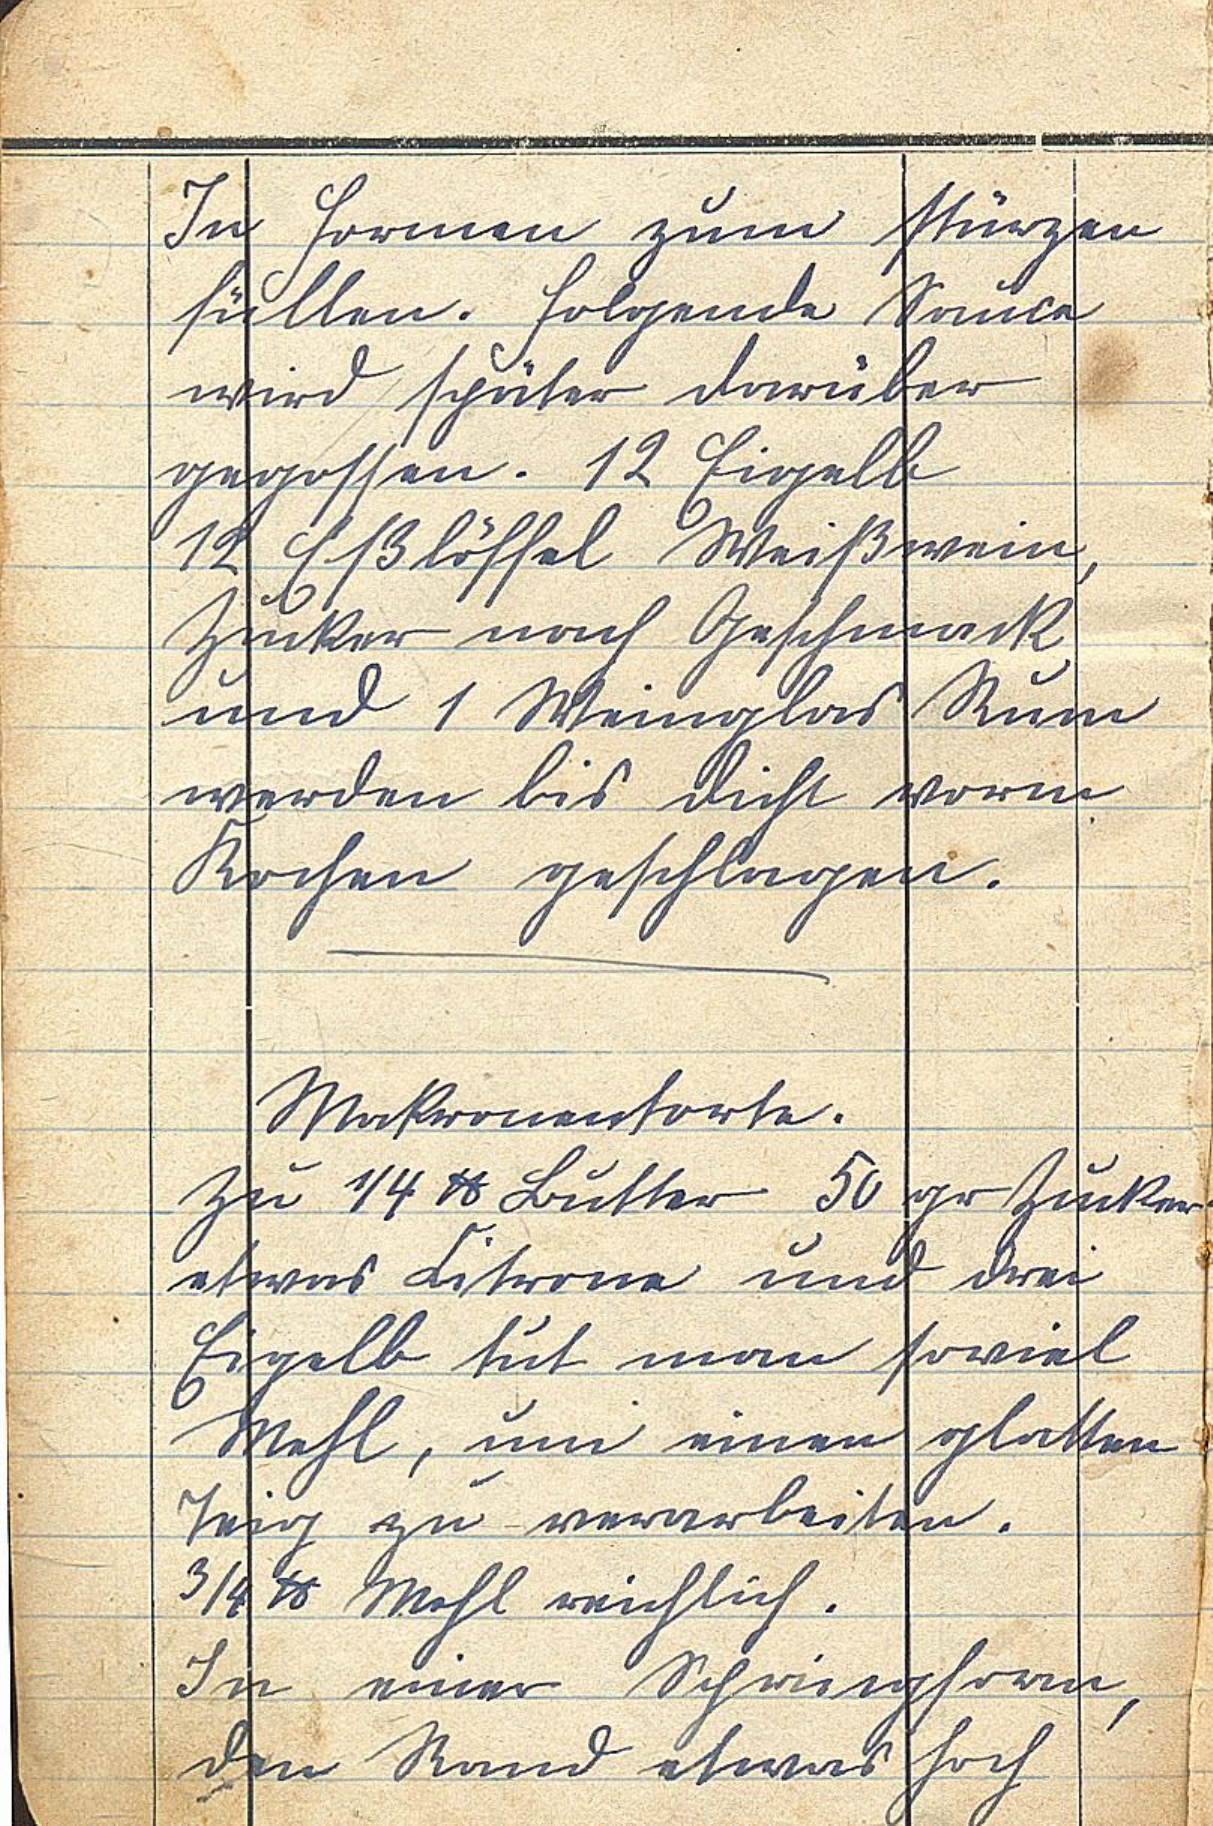 In Formen zum stürzen
füllen. Folgende Sauce
wird später darüber
gegossen. 12 Eigelb
12 Eßlöffel Weißwein,
Zucker nach Geschmack
und 1 Weinglas Rum
werden bis dicht vorm
Kochen geschlagen.
Makronentorte.
Zu 1/4 ℔ Butter 50 gr Zucker
etwas Citrone und drei
Eigelb tut man soviel
Mehl, um einen glatten
Teig zu verarbeiten.
3/4 ℔ Mehl reichlich.
In einer Springform,
den Rand etwas hoch